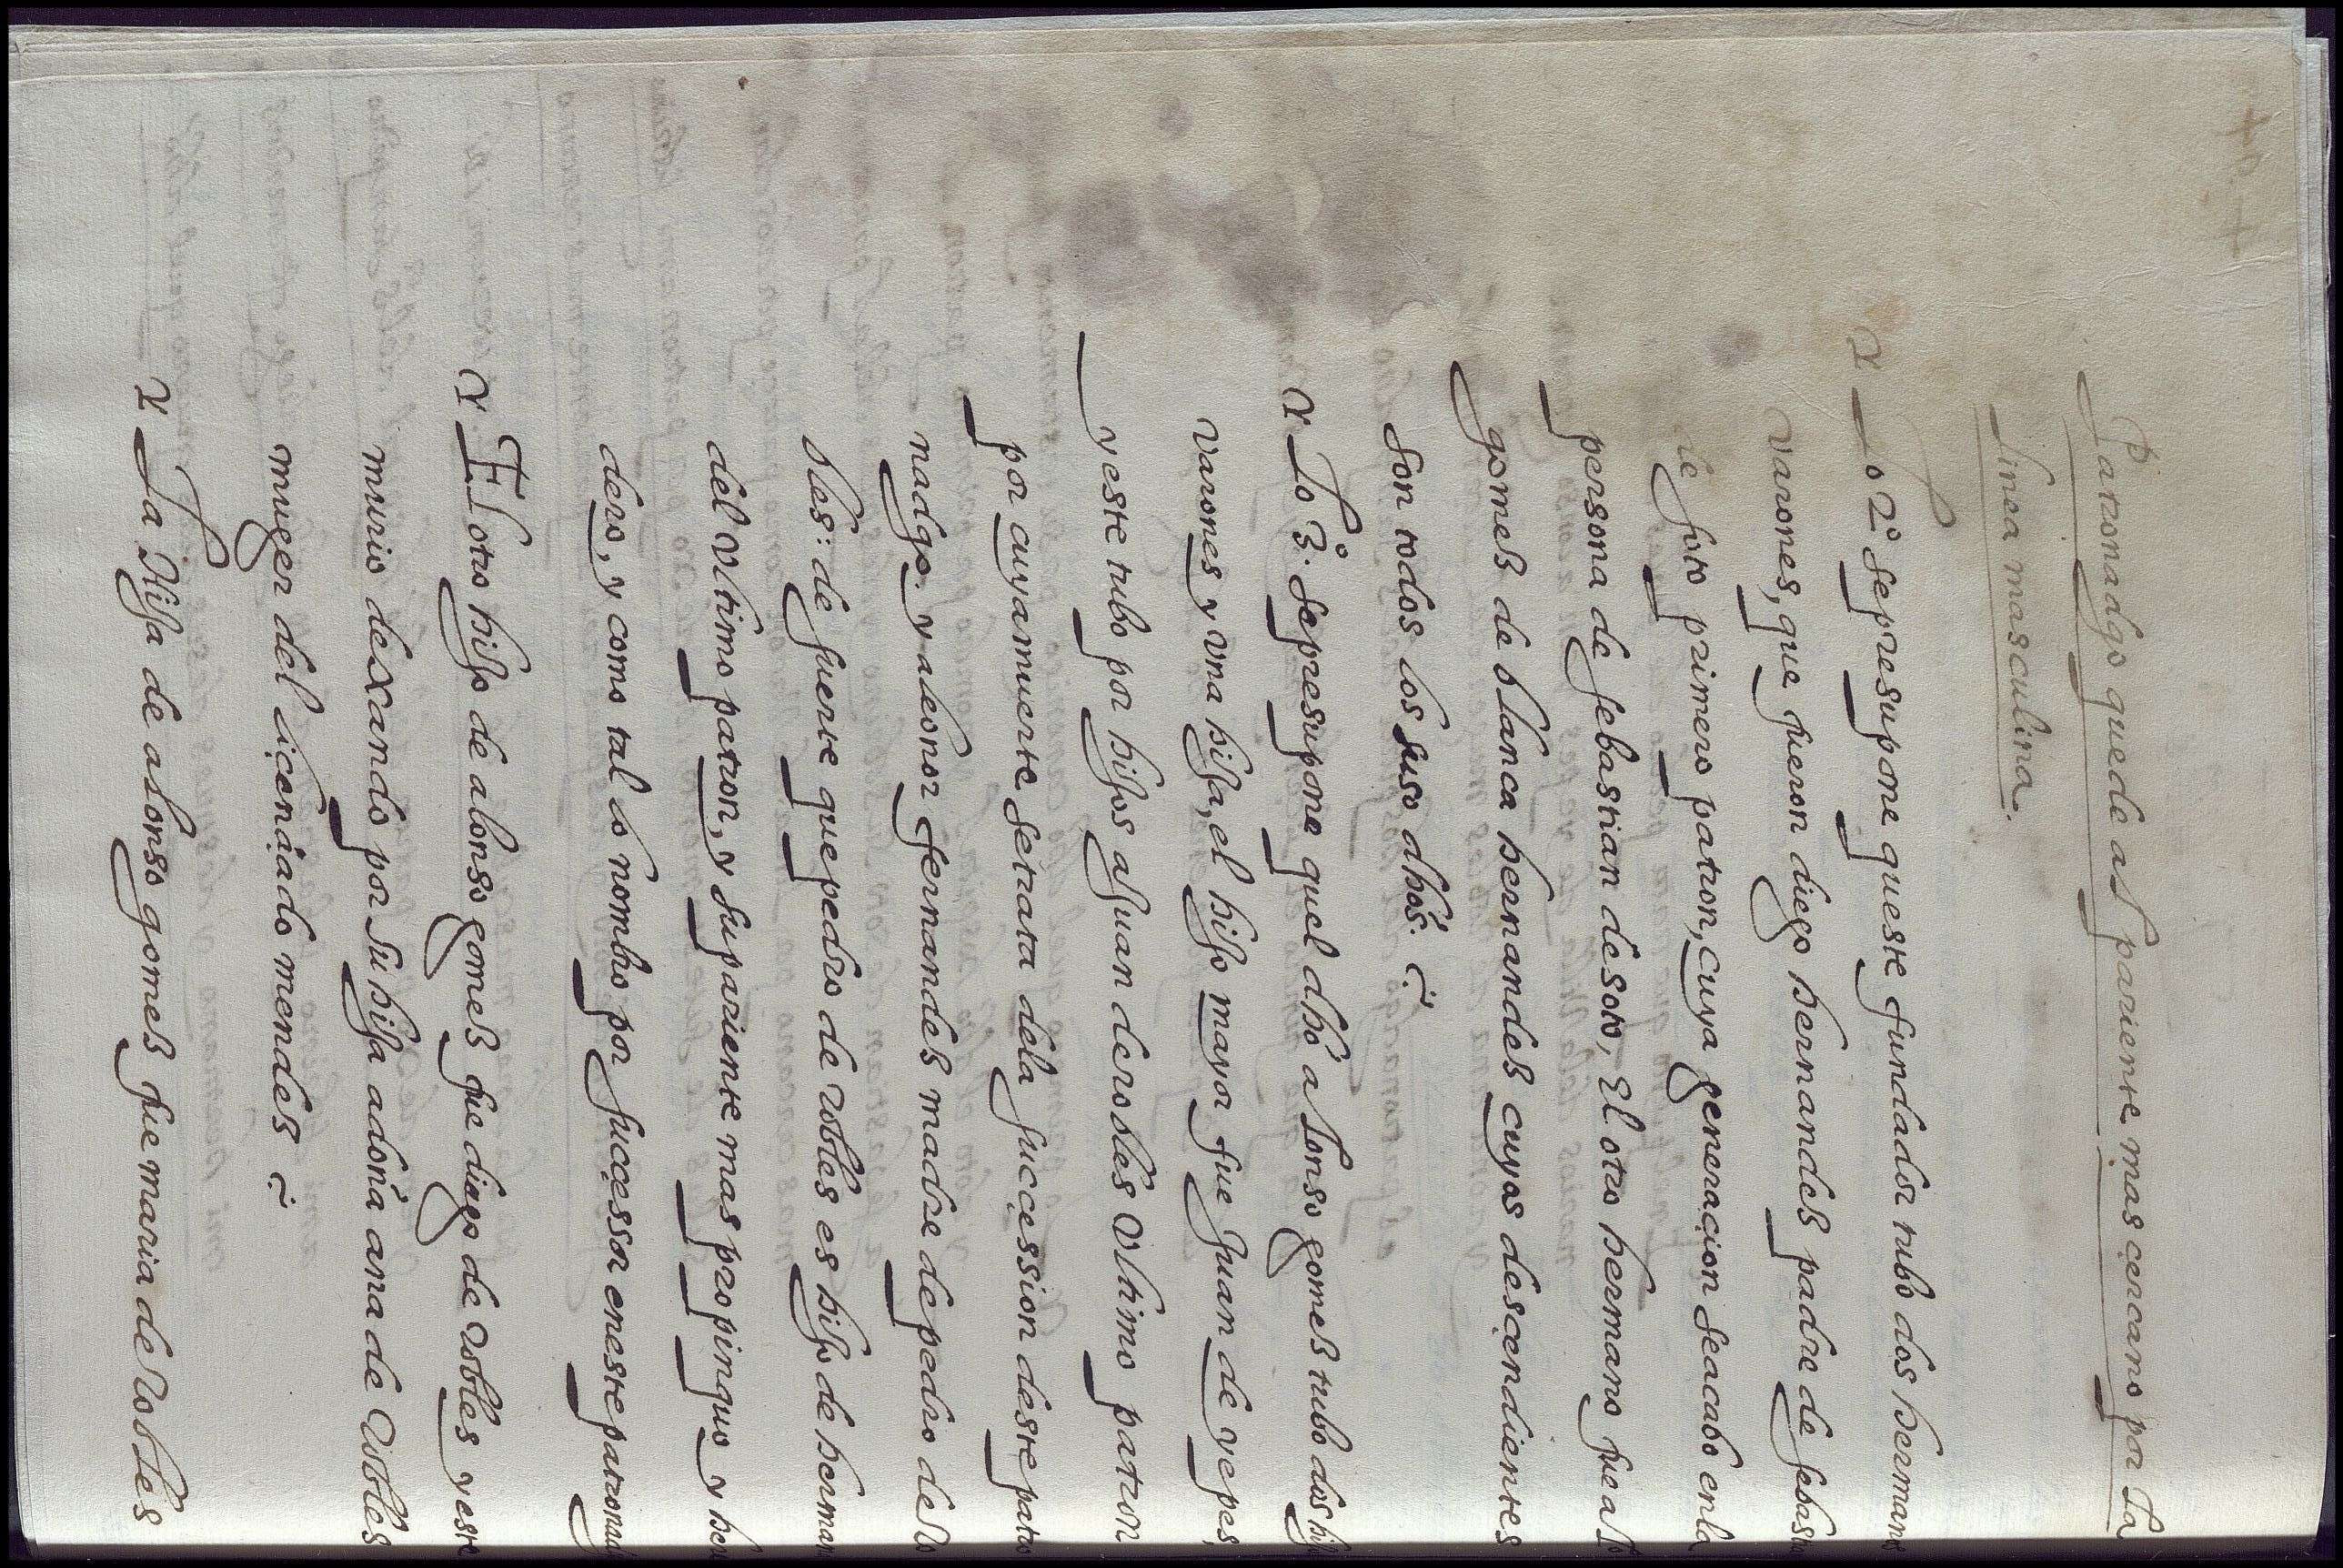 Patronadgo quede al pariente mas cercano por la
linea masculina.
Lo 2º se presupone queste fundador tubo dos hermanos
varones, que fueron diego hernandes padre de sebastia
de soto primero patron, cuya generaçion se acabo en la
persona de sebastian de soto, El otro hermano fue alº
gomes de blanca hernandes cuyos desçendientes
son todos los suso dhos.
Lo 3º. se presupone quel dho alonso gomes tubo dos hijos
varones y una hija, el hijo mayor fue juan de yepes
y este tubo por hijos a Juan de robles Vltimo patron
por cuya muerte se trata de la succession deste patro
nadgo. y a leonor fernandes madre de pedro de Ro
bles: de suerte que pedro de Robles es hijo de herman
del Vltimo patron, y su pariente mas propinquo y here
dero, y como tal lo nombro por successor en este patronadg
El otro hijo de alonso gomes fue diego de Robles y este
murio dexando por su hija a doña ana de Robles
muger del liçençiado mendes
La Hija de alonso gomes fue maria de Robles